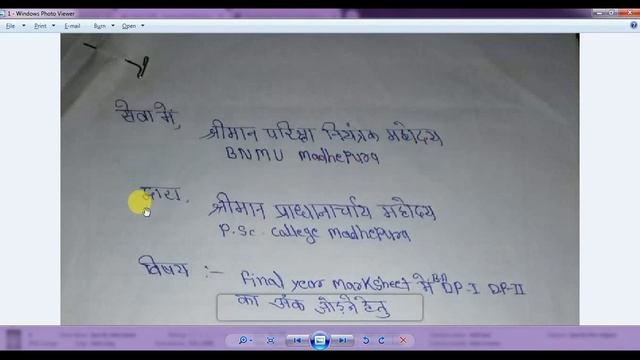 1 - Windows Photo Viewer
File Print E-mail Burn Open
सेवा में,
श्रीमान परिक्षा नियंत्रक महोदय
BNMU madhepura
द्वारा,
श्रीमान प्राधानाचार्य महोदय
P.Sc. College madhepura
विषय :- final year marksheet में BA DP-I DP-II
का अंक जोड़ने हेतु